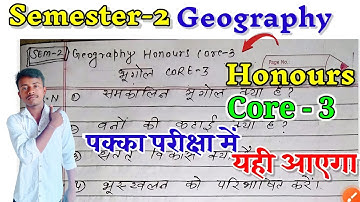 Semester-2 Geography
SEM-2 Geography Honours Core-3
भूगोल CORE-3
Page No.:
Honours
Core - 3
समकालिन भूगोल क्या है?
वनों की कटाई क्या है?
पक्का परीक्षा में
यही आएगा
सतत विकास
भूस्खलन को परिभाषित करो